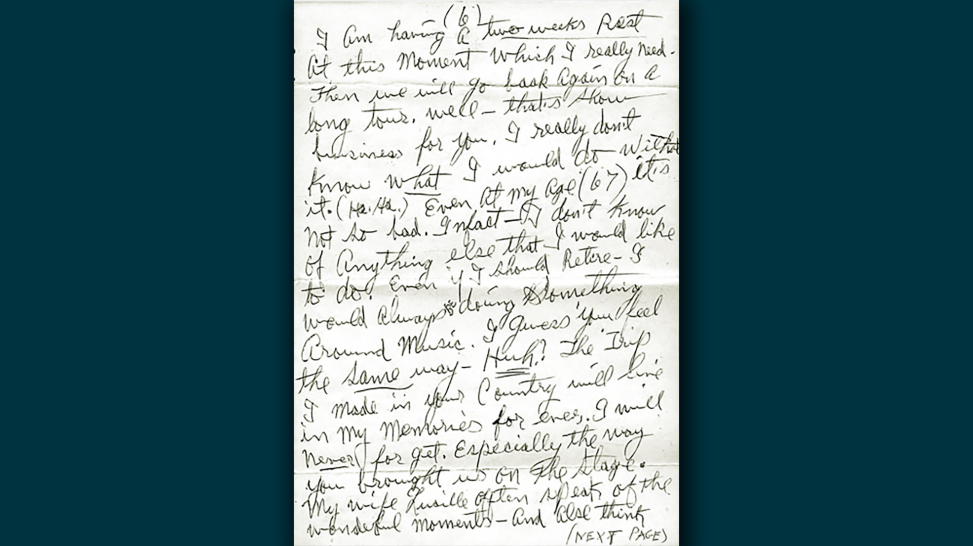 (6)
I Am having A two weeks Rest
At this Moment Which I really need-
Then we will go back Again on a
long tour. Well- that's Show
business for you. I really don't
know what I would do Without
it. (Ha. Ha.) Even At my Age (67) it's
not so bad. Infact- I don't know
of Anything else that I would like
to do. Even if I should Retire- I
would Always doing Something
Around Music. I guess you feel
the same way- Huh? The Trip
I made in your Country will live
in my Memories for ever. I will
Never for get. Especially the way
you brought us on The Stage.
My wife Lucille often speak of the
wonderful moments- And Also think
(NEXT PAGE)